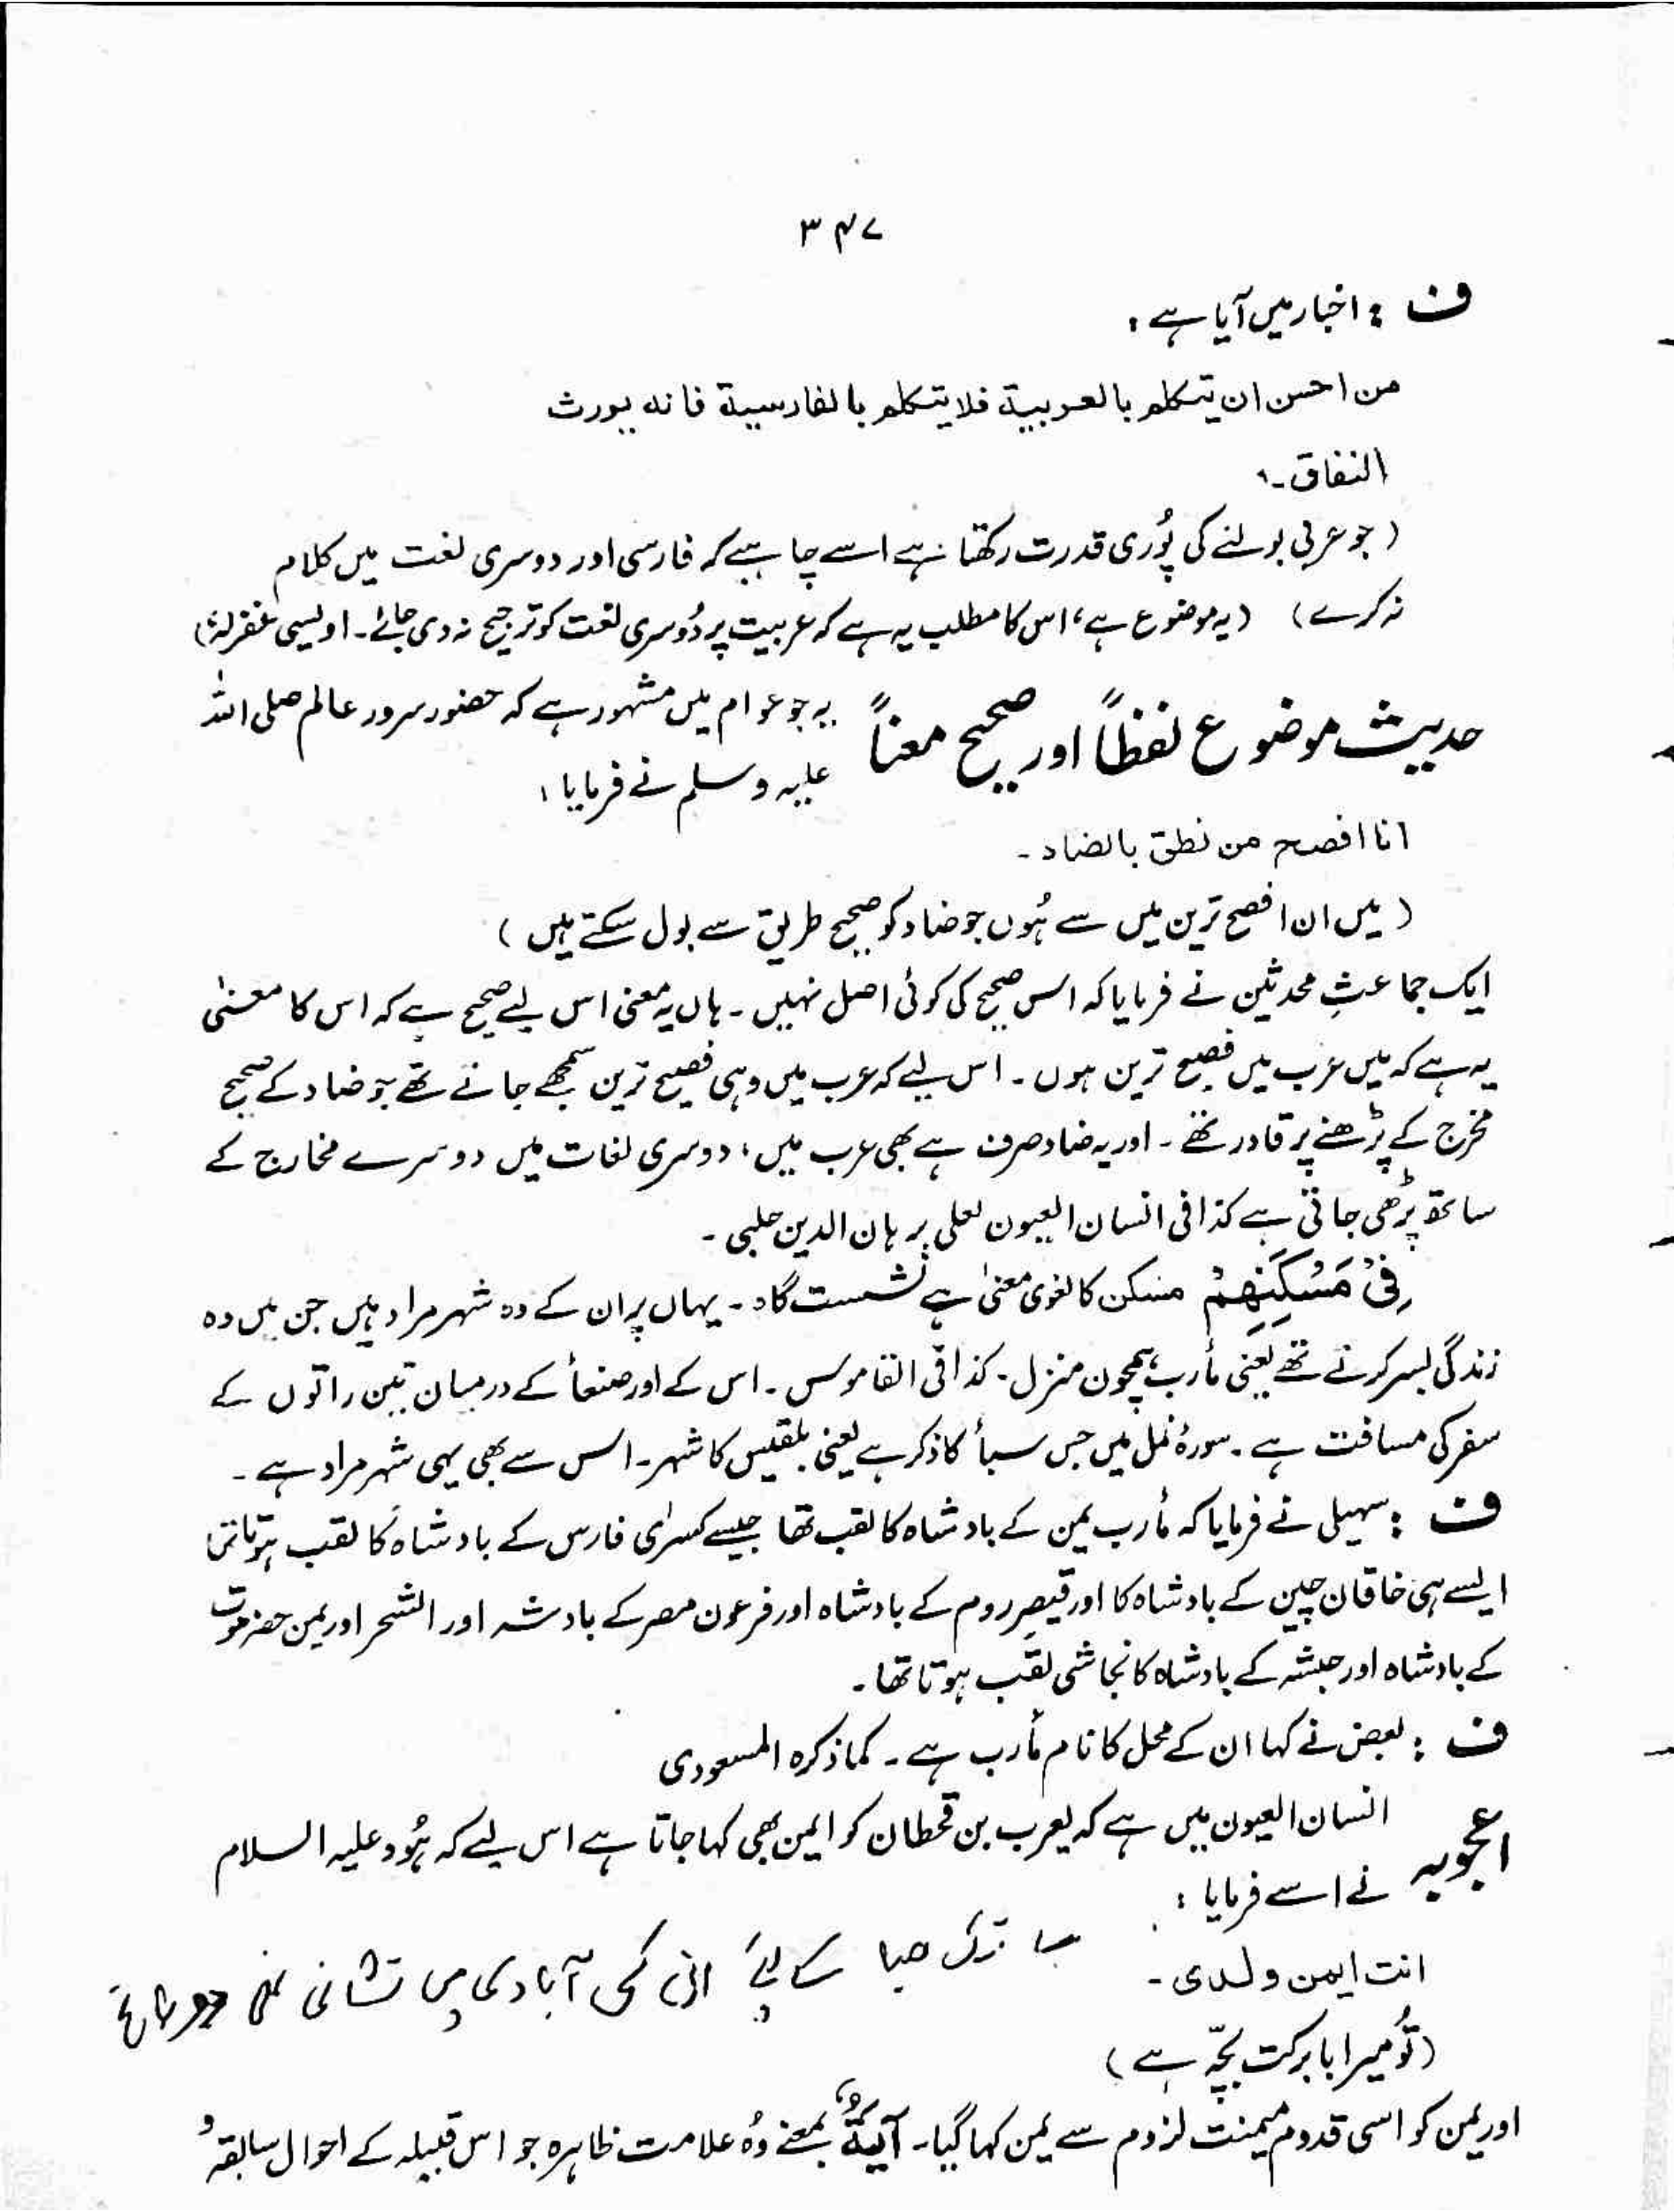 ۳۴۷
ف : اخبار میں آیا ہے :
من احسن ان یتکلم بالعربیة فلا یتکلم بالفارسیة فانه یورث
النفاق ۔
( جو عربی بولنے کی پُوری قدرت رکھتا ہے اسے چاہیے کہ فارسی اور دوسری لغت میں کلام
نہ کرے ) (یہ موضوع ہے، اس کا مطلب یہ ہے کہ عربیت پر دُوسری لغت کو ترجیح نہ دی جائے۔ اویسی غفرلہٗ)
حدیث موضوع لفظاً اور صحیح معناً یہ جو عوام میں مشہور ہے کہ حضور سرور عالم صلی اللہ
علیہ وسلم نے فرمایا :
انا افصح من نطق بالضاد ۔
( میں ان افصح ترین میں سے ہُوں جو ضاد کو صحیح طریق سے بول سکتے ہیں )
ایک جماعتِ محدثین نے فرمایا کہ اس صحیح کی کوئی اصل نہیں ۔ ہاں یہ معنی اس لیے صحیح ہے کہ اس کا معنٰی
یہ ہے کہ میں عرب میں فصیح ترین ہوں ۔ اس لیے کہ عرب میں وہی فصیح ترین سمجھے جاتے تھے جو ضاد کے صحیح
مخرج کے پڑھنے پر قادر تھے ۔ اور یہ ضاد صرف ہے بھی عرب میں، دوسری لغات میں دوسرے مخارج کے
ساتھ پڑھی جاتی ہے کذا فی انسان العیون لعلی برہان الدین حلبی ۔
فِیْ مَسْکَنِهِمْ مسکن کا لغوی معنیٰ ہے نشست گاہ ۔ یہاں پر ان کے وہ شہر مراد ہیں جن میں وہ
زندگی بسر کرتے تھے یعنی مأرب ہمچون منزل ۔ کذا فی القاموس ۔ اس کے اور صنعأ کے درمیان تین راتوں کے
سفر کی مسافت ہے ۔ سورۂ نمل میں جس سبأ کا ذکر ہے یعنی بلقیس کا شہر ۔ اس سے بھی یہی شہر مراد ہے ۔
ف : سہیلی نے فرمایا کہ مأرب یمن کے بادشاہ کا لقب تھا جیسے کسرٰی فارس کے بادشاہ کا لقب ہوتا تھا
ایسے ہی خاقان چین کے بادشاہ کا اور قیصرِ روم کے بادشاہ اور فرعون مصر کے بادشہ اور الشحر اور یمن حضرموت
کے بادشاہ اور حبشہ کے بادشاہ کا نجاشی لقب ہوتا تھا ۔
ف : بعض نے کہا ان کے محل کا نام مأرب ہے ۔ کما ذکرہ المسعودی
اعجوبہ انسان العیون میں ہے کہ یعرب بن قحطان کو ایمن بھی کہا جاتا ہے اس لیے کہ ہُود علیہ السلام
نے اسے فرمایا :
انت ایمن ولدی ۔
کے لیے ان کی آبادی میں نشانی تھی
(تُو میرا بابرکت بچّہ ہے )
اور یمن کو اسی قدوم میمنت لزوم سے یمن کہا گیا ۔ آیَةٌ بمعنے وُہ علامت ظاہرہ جو اس قبیلہ کے احوال سابقہ و